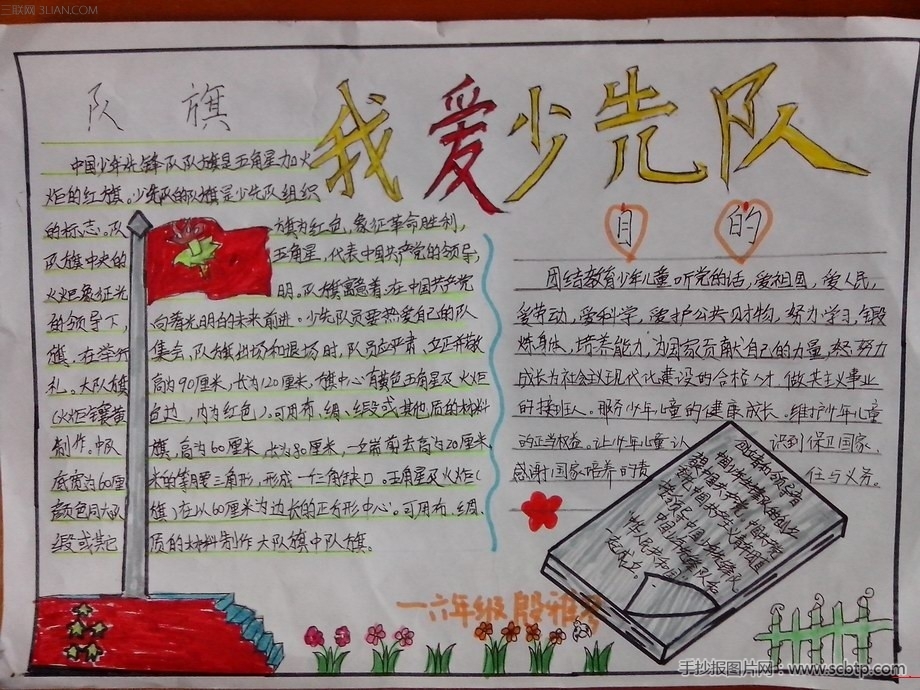 三联网 3LIAN.COM
我爱少先队
队旗
中国少年先锋队队旗是五角星加火
炬的红旗。少先队的队旗是少先队组织
的标志。队旗为红色,象征革命胜利,
队旗中央的五角星,代表中国共产党的领导,
火炬象征光明。队旗寓意着:在中国共产党
的领导下,向着光明的未来前进。少先队员要热爱自己的队
旗,在举行集会,队旗出场和退场时,队员应严肃,立正并敬
礼。大队旗高为90厘米,长为120厘米,旗中心有黄色五角星及火炬
色边,内为红色)。可用布、绸、缎或其他质的材料
制作。中队旗,高为60厘米,长为80厘米,一端剪去高为20厘米,
底宽为60厘米的等腰三角形,形成一个三角缺口。五角星及火炬(
颜色同大队旗)在以60厘米为边长的正方形中心。可用布、绸、
缎或其它质的材料制作大队旗中队旗。
目的
团结教育少年儿童,听党的话,爱祖国,爱人民,
爱劳动,爱科学,爱护公共财物,努力学习,锻
炼身体,培养能力,为国家贡献自己的力量,努力
成长为社会主义现代化建设的合格人才,做共主义事业
的接班人。服务少年儿童的健康成长。维护少年儿童
的正当权益。让少年儿童认识到保卫国家
感谢国家培养的责任与义务。
创立者和领导者
中国少年先锋队的创立
者和领导者
一六年级殷雅
手抄报图片网:www.scbtp.com